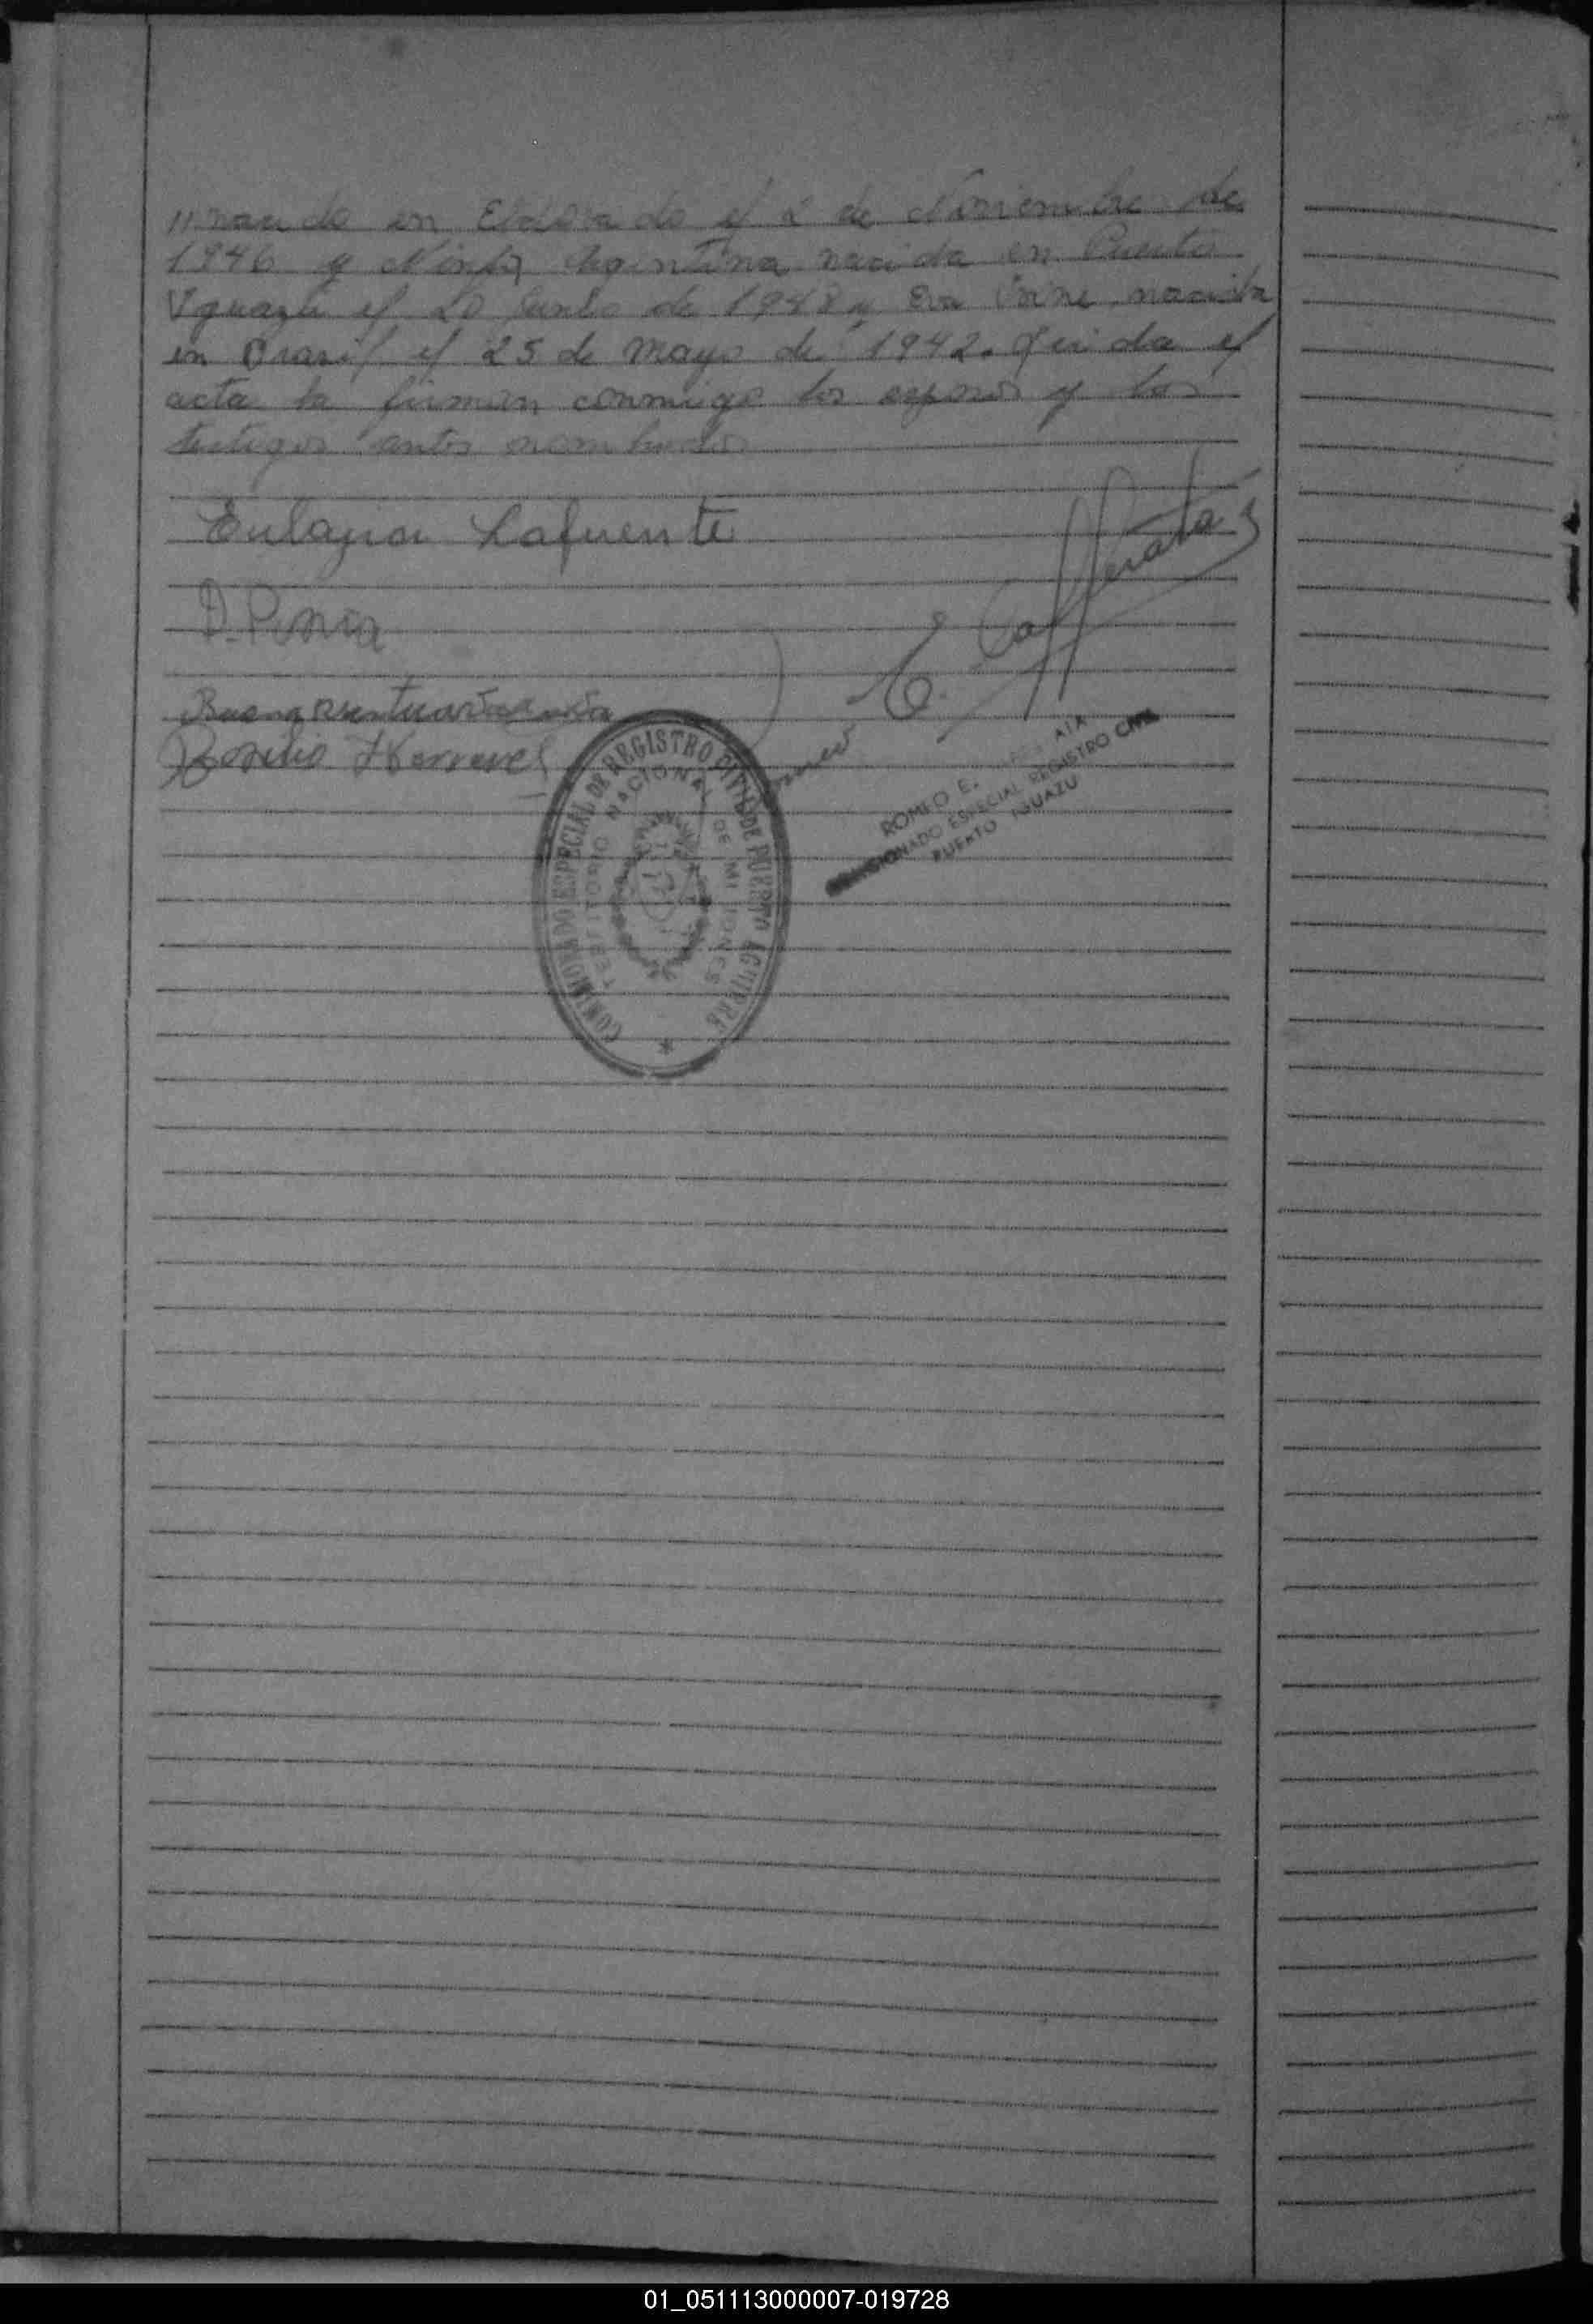 // nacido en Eldorado el 2 de Noviembre de
1946 y Ninfa Argentina nacida en Puerto
Yguazú el 20 Junio de 1948 y Eva Irene nacida
en Brasil el 25 de Mayo de 1942. Leida el
acta la firman conmigo los esposos y los
testigos antes nombrados
Eulajia Lafuente
Romeo E. Cafferata
Basilio
COMISIONADO ESPECIAL DE REGISTRO CIVIL DE PUERTO AGUIRRE
TERRITORIO NACIONAL DE MISIONES
ROMEO E.
COMISIONADO ESPECIAL REGISTRO CIVIL
PUERTO IGUAZU
01_051113000007-019728